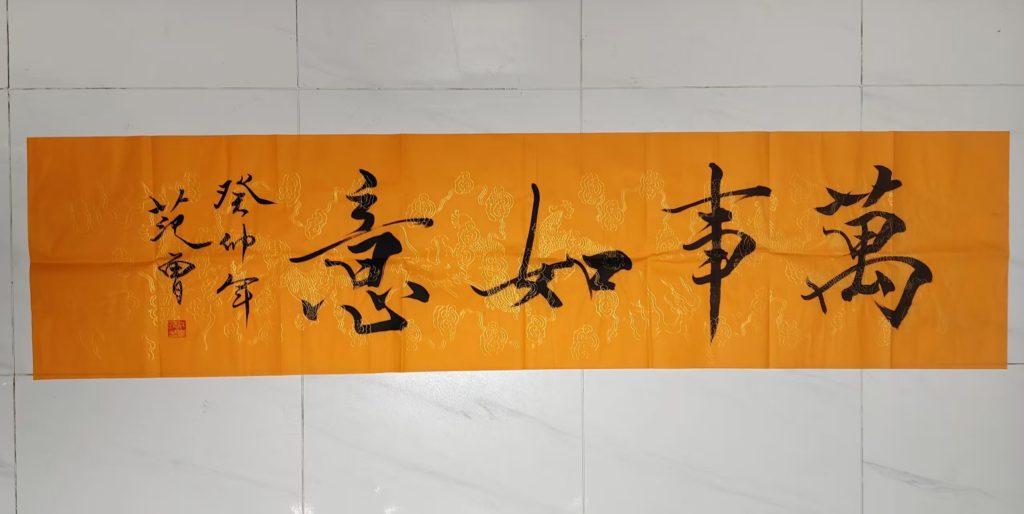 萬事如意
癸卯年
范曾